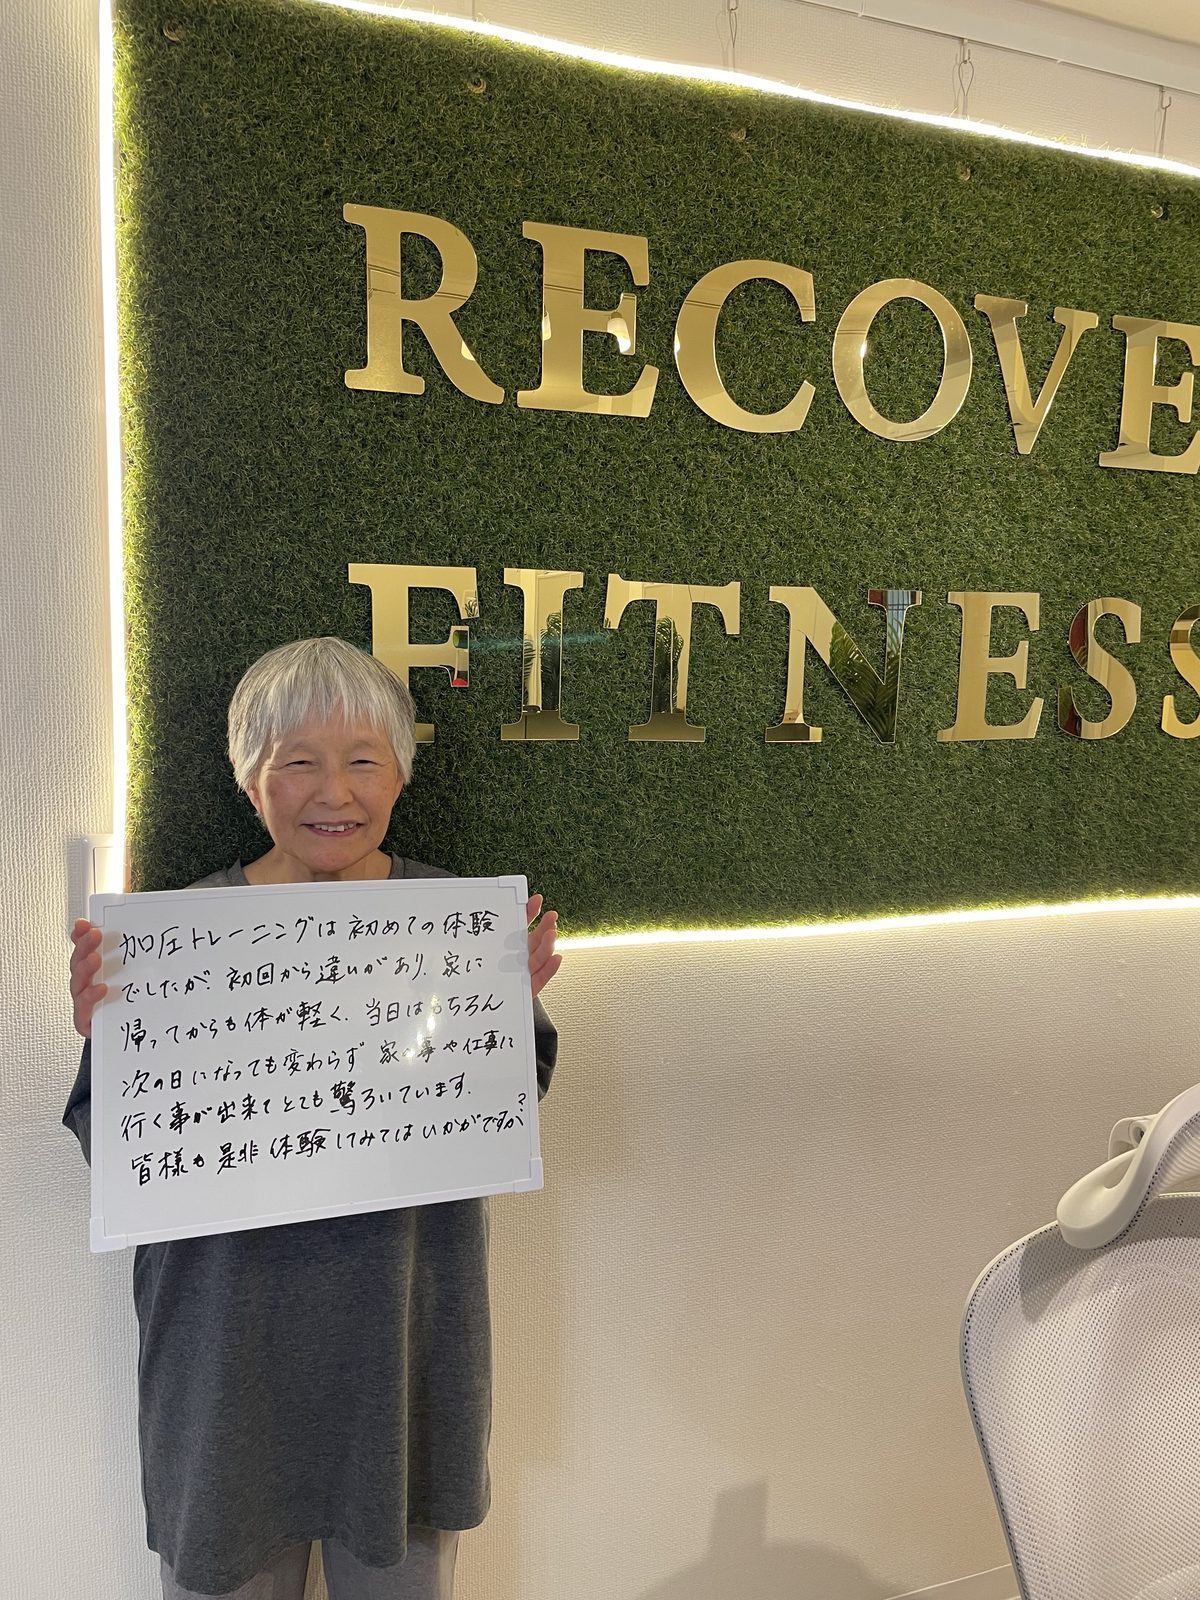 RECOVE
FITNESS
加圧トレーニングは初めての体験
でしたが、初回から違いがあり、家に
帰ってからも体が軽く、当日はもちろん
次の日になっても変わらず家の事や仕事に
行く事が出来てとても驚ろいています。
皆様も是非体験してみてはいかがですか?